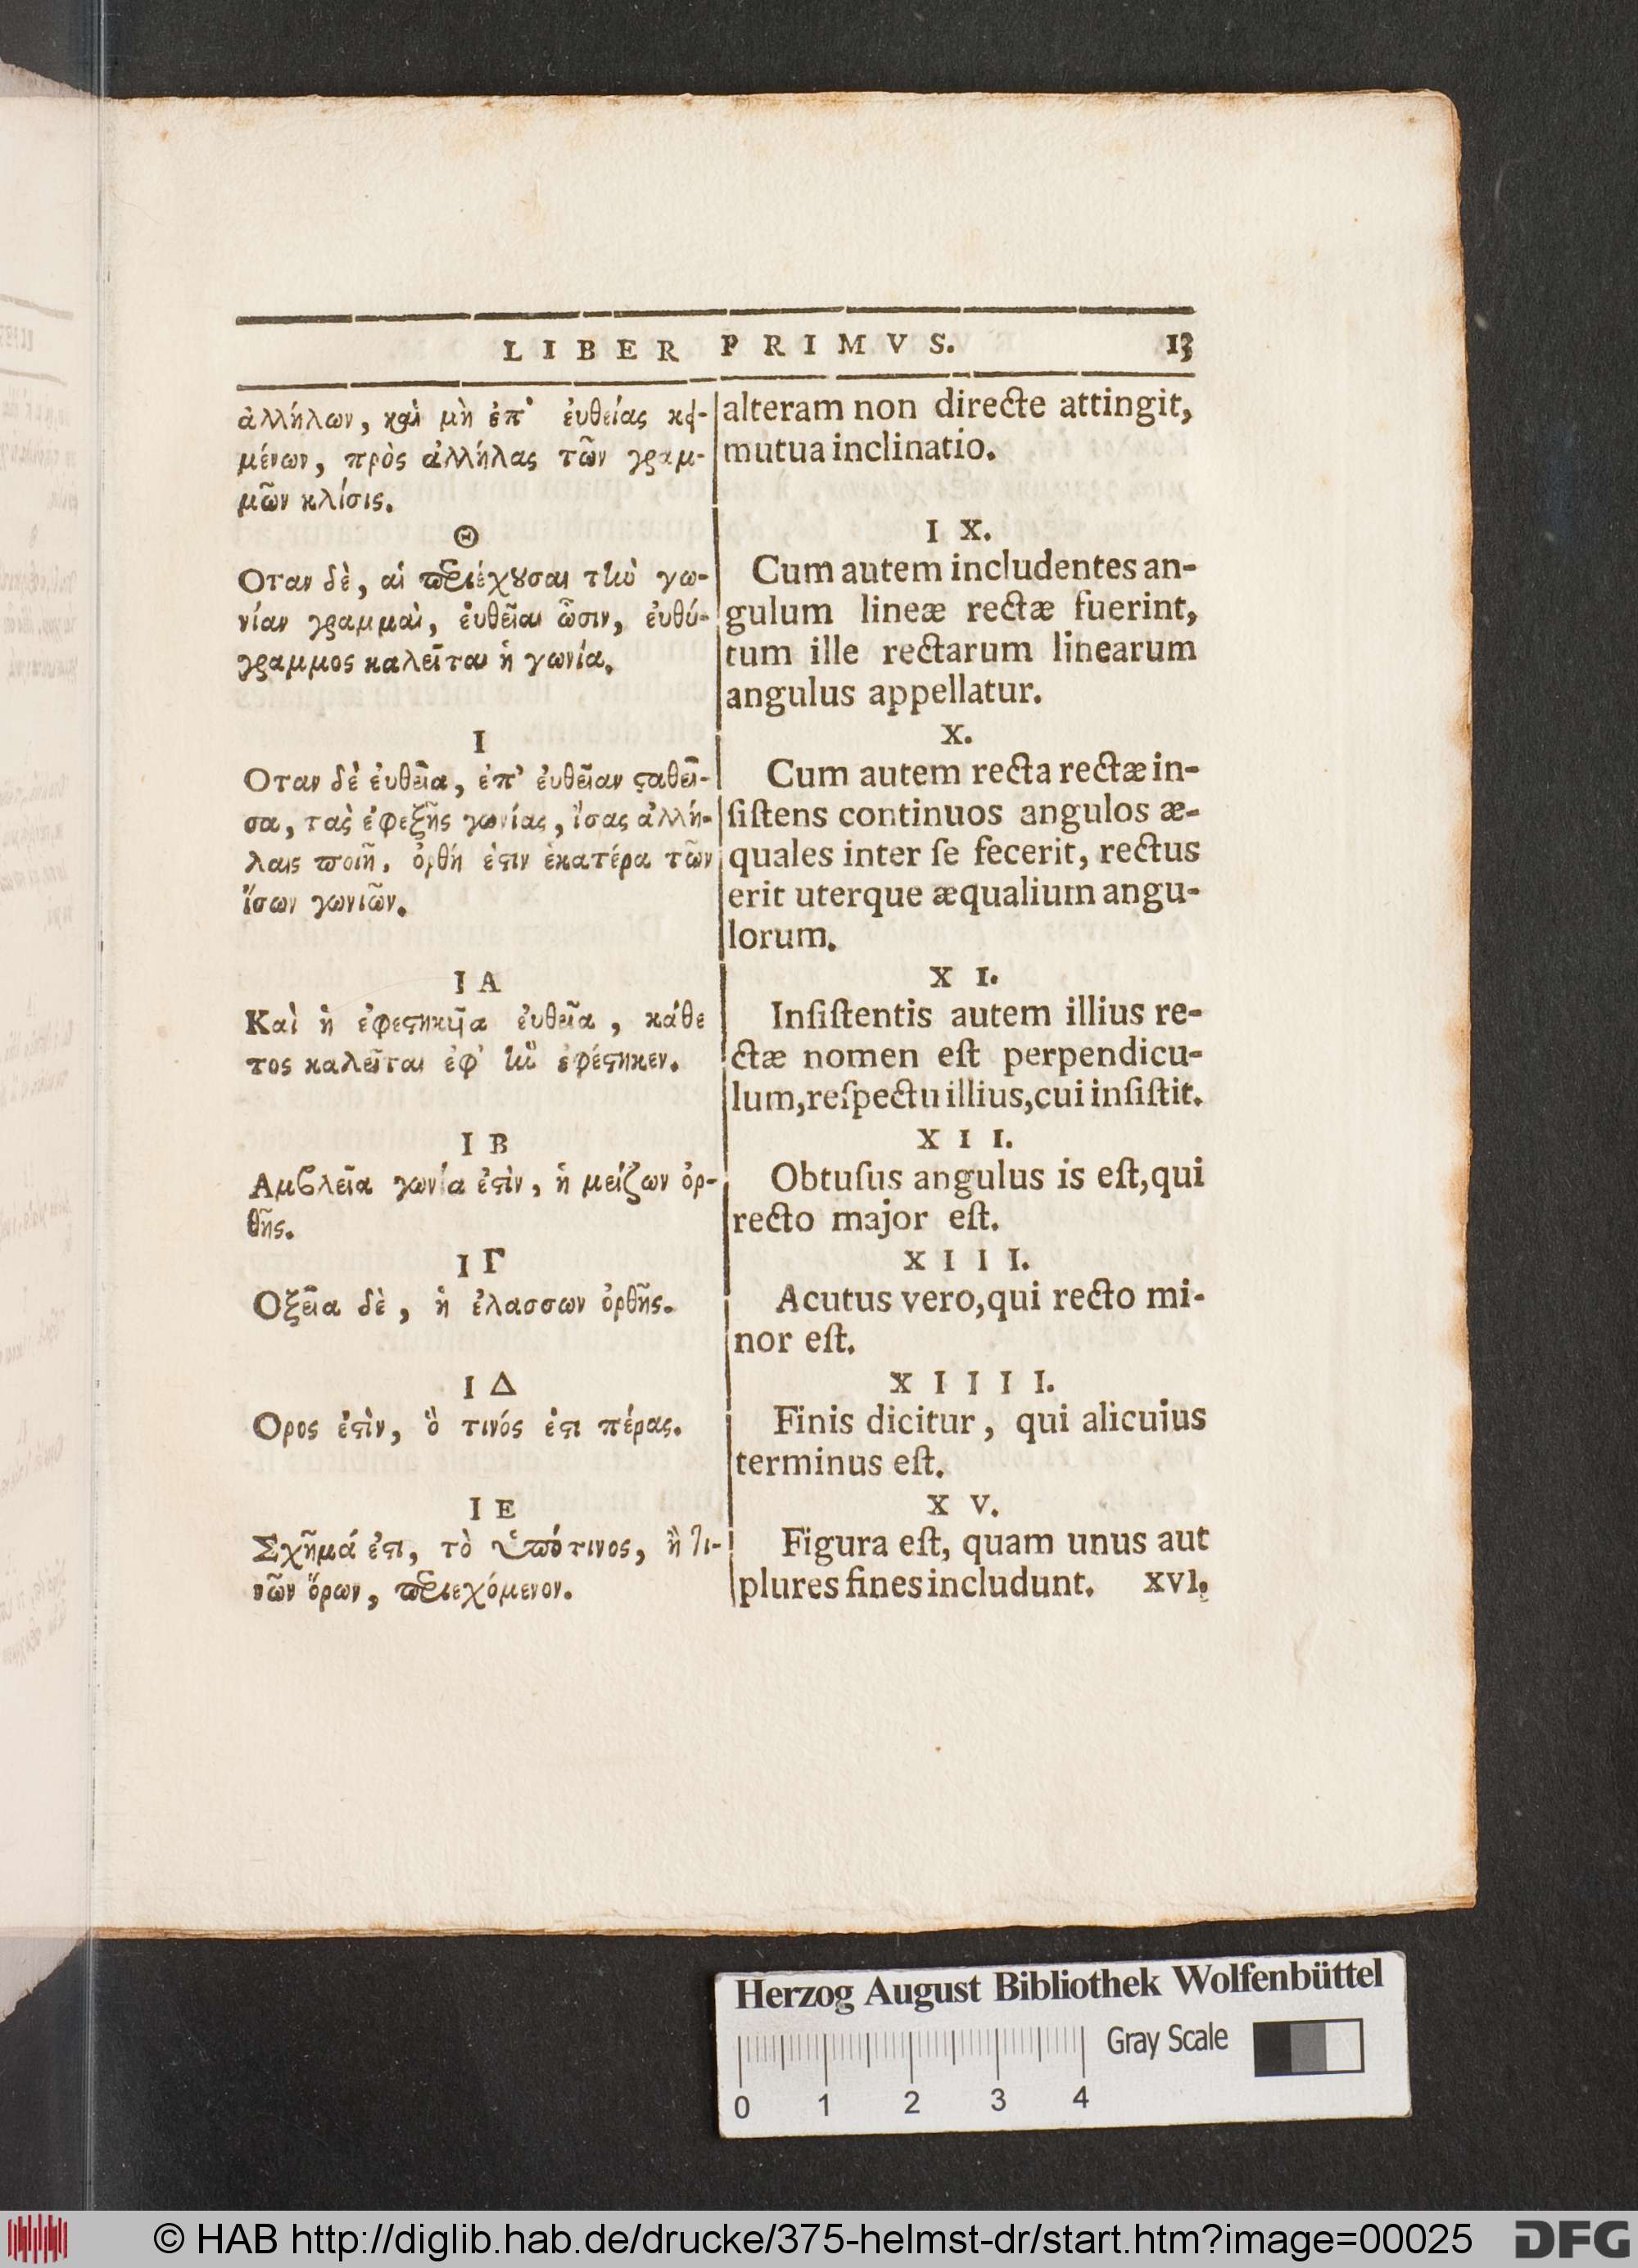 LIBER PRIMVS. 13
ἀλλήλων, καὶ μὴ ἐπ' ἐυθείας κει-
μένων, πρὸς ἀλλήλας τῶν γραμ-
μῶν κλίσις.
Θ
Οταν δὲ, αἱ περιέχουσαι τὴν γω-
νίαν γραμμαὶ, ἐυθεῖαι ὦσιν, ἐυθύ-
γραμμος καλεῖται ἡ γωνία.
Ι
Οταν δὲ ἐυθεῖα, ἐπ' ἐυθεῖαν ϛαθεῖ-
σα, τὰς ἐφεξῆς γωνίας, ἴσας ἀλλή-
λαις ποιῇ, ὀρθή ἐϛιν ἑκατέρα τῶν
ἴσων γωνιῶν.
Ι Α
Καὶ ἡ ἐφεϛηκυῖα ἐυθεῖα, κάθε
τος καλεῖται ἐφ' ἣν ἐφέϛηκεν.
Ι Β
Αμβλεῖα γωνία ἐϛὶν, ἡ μείζων ὀρ-
θῆς.
Ι Γ
Οξεῖα δὲ, ἡ ἐλασσων ὀρθῆς.
Ι Δ
Ορος ἐϛὶν, ὃ τινός ἐϛι πέρας.
Ι Ε
Σχῆμά ἐϛι, τὸ ὑπότινος, ἤ τι-
νῶν ὅρων, περιεχόμενον.
alteram non directe attingit,
mutua inclinatio.
I X.
Cum autem includentes an-
gulum lineæ rectæ fuerint,
tum ille rectarum linearum
angulus appellatur.
X.
Cum autem recta rectæ in-
ſiſtens continuos angulos æ-
quales inter ſe fecerit, rectus
erit uterque æqualium angu-
lorum.
X I.
Inſiſtentis autem illius re-
ctæ nomen eſt perpendicu-
lum, reſpectu illius, cui inſiſtit.
X I I.
Obtuſus angulus is eſt, qui
recto major eſt.
X I I I.
Acutus vero, qui recto mi-
nor eſt.
X I I I I.
Finis dicitur, qui alicuius
terminus eſt.
X V.
Figura eſt, quam unus aut
plures fines includunt. XVI.
Herzog August Bibliothek Wolfenbüttel
Gray Scale
0 1 2 3 4
© HAB http://diglib.hab.de/drucke/375-helmst-dr/start.htm?image=00025 DFG